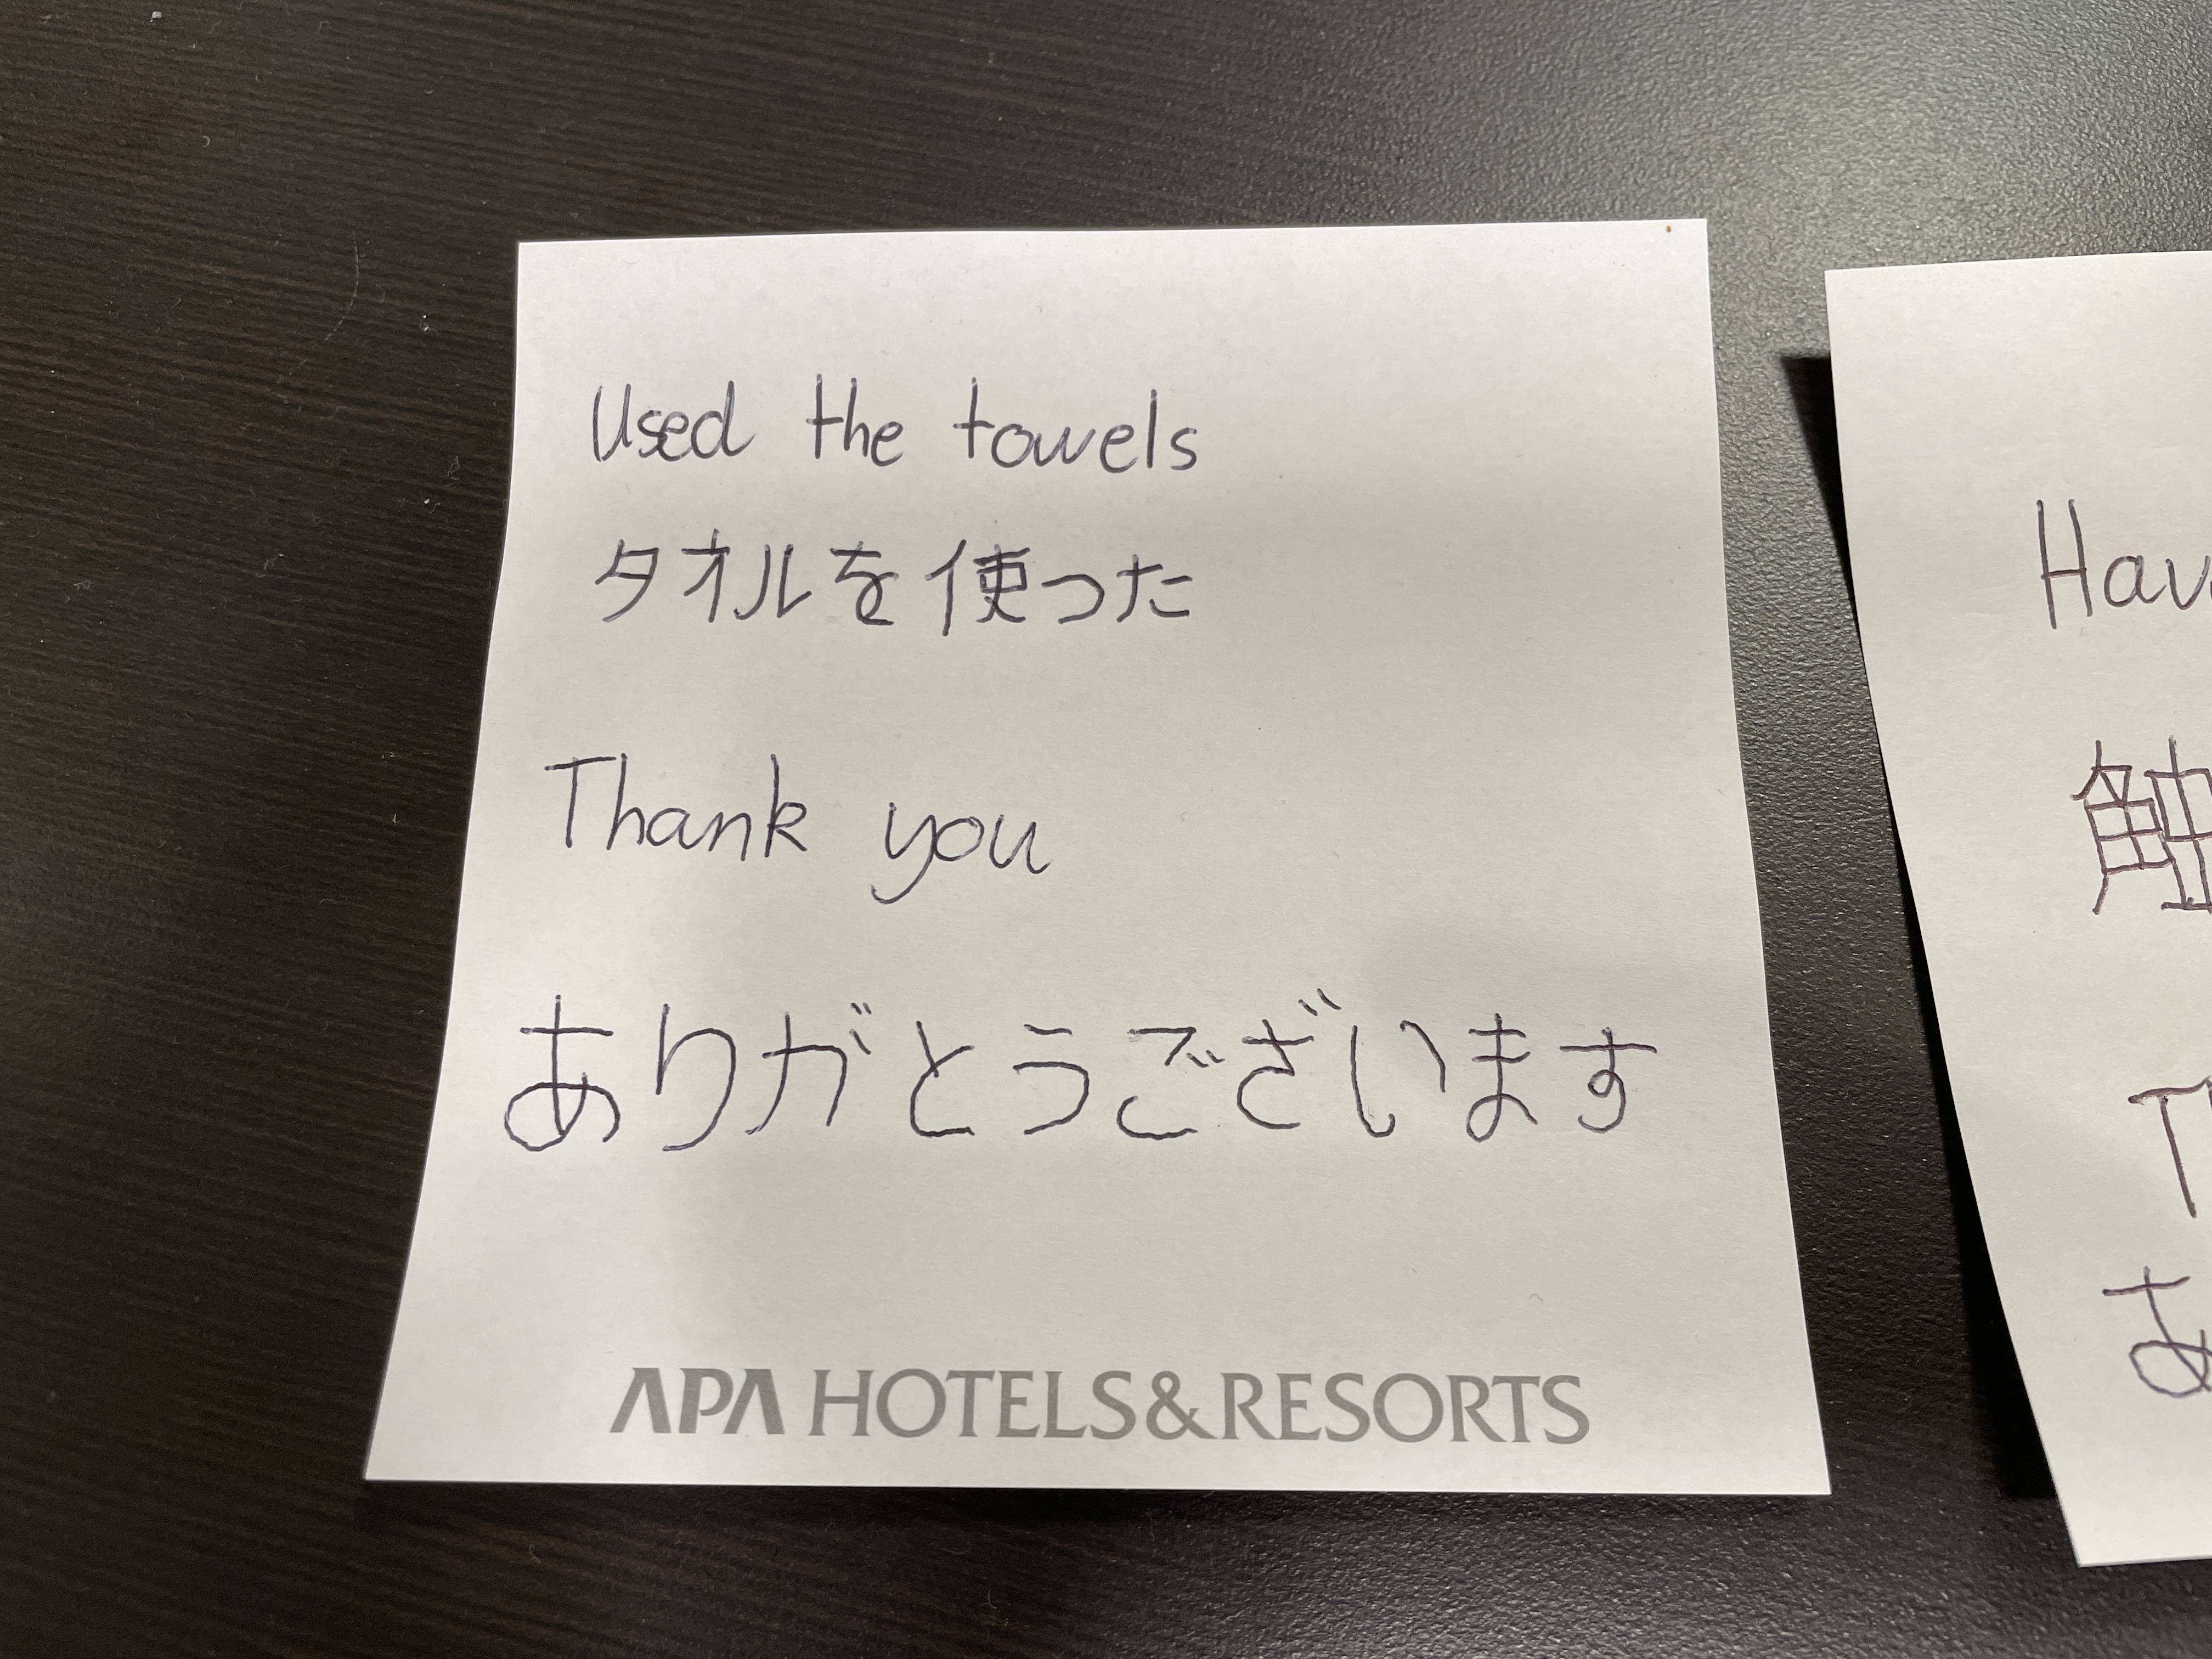 Used the towels
タオルを使った
Thank you
ありがとうございます
APA HOTELS&RESORTS
Hav
触
T
あ